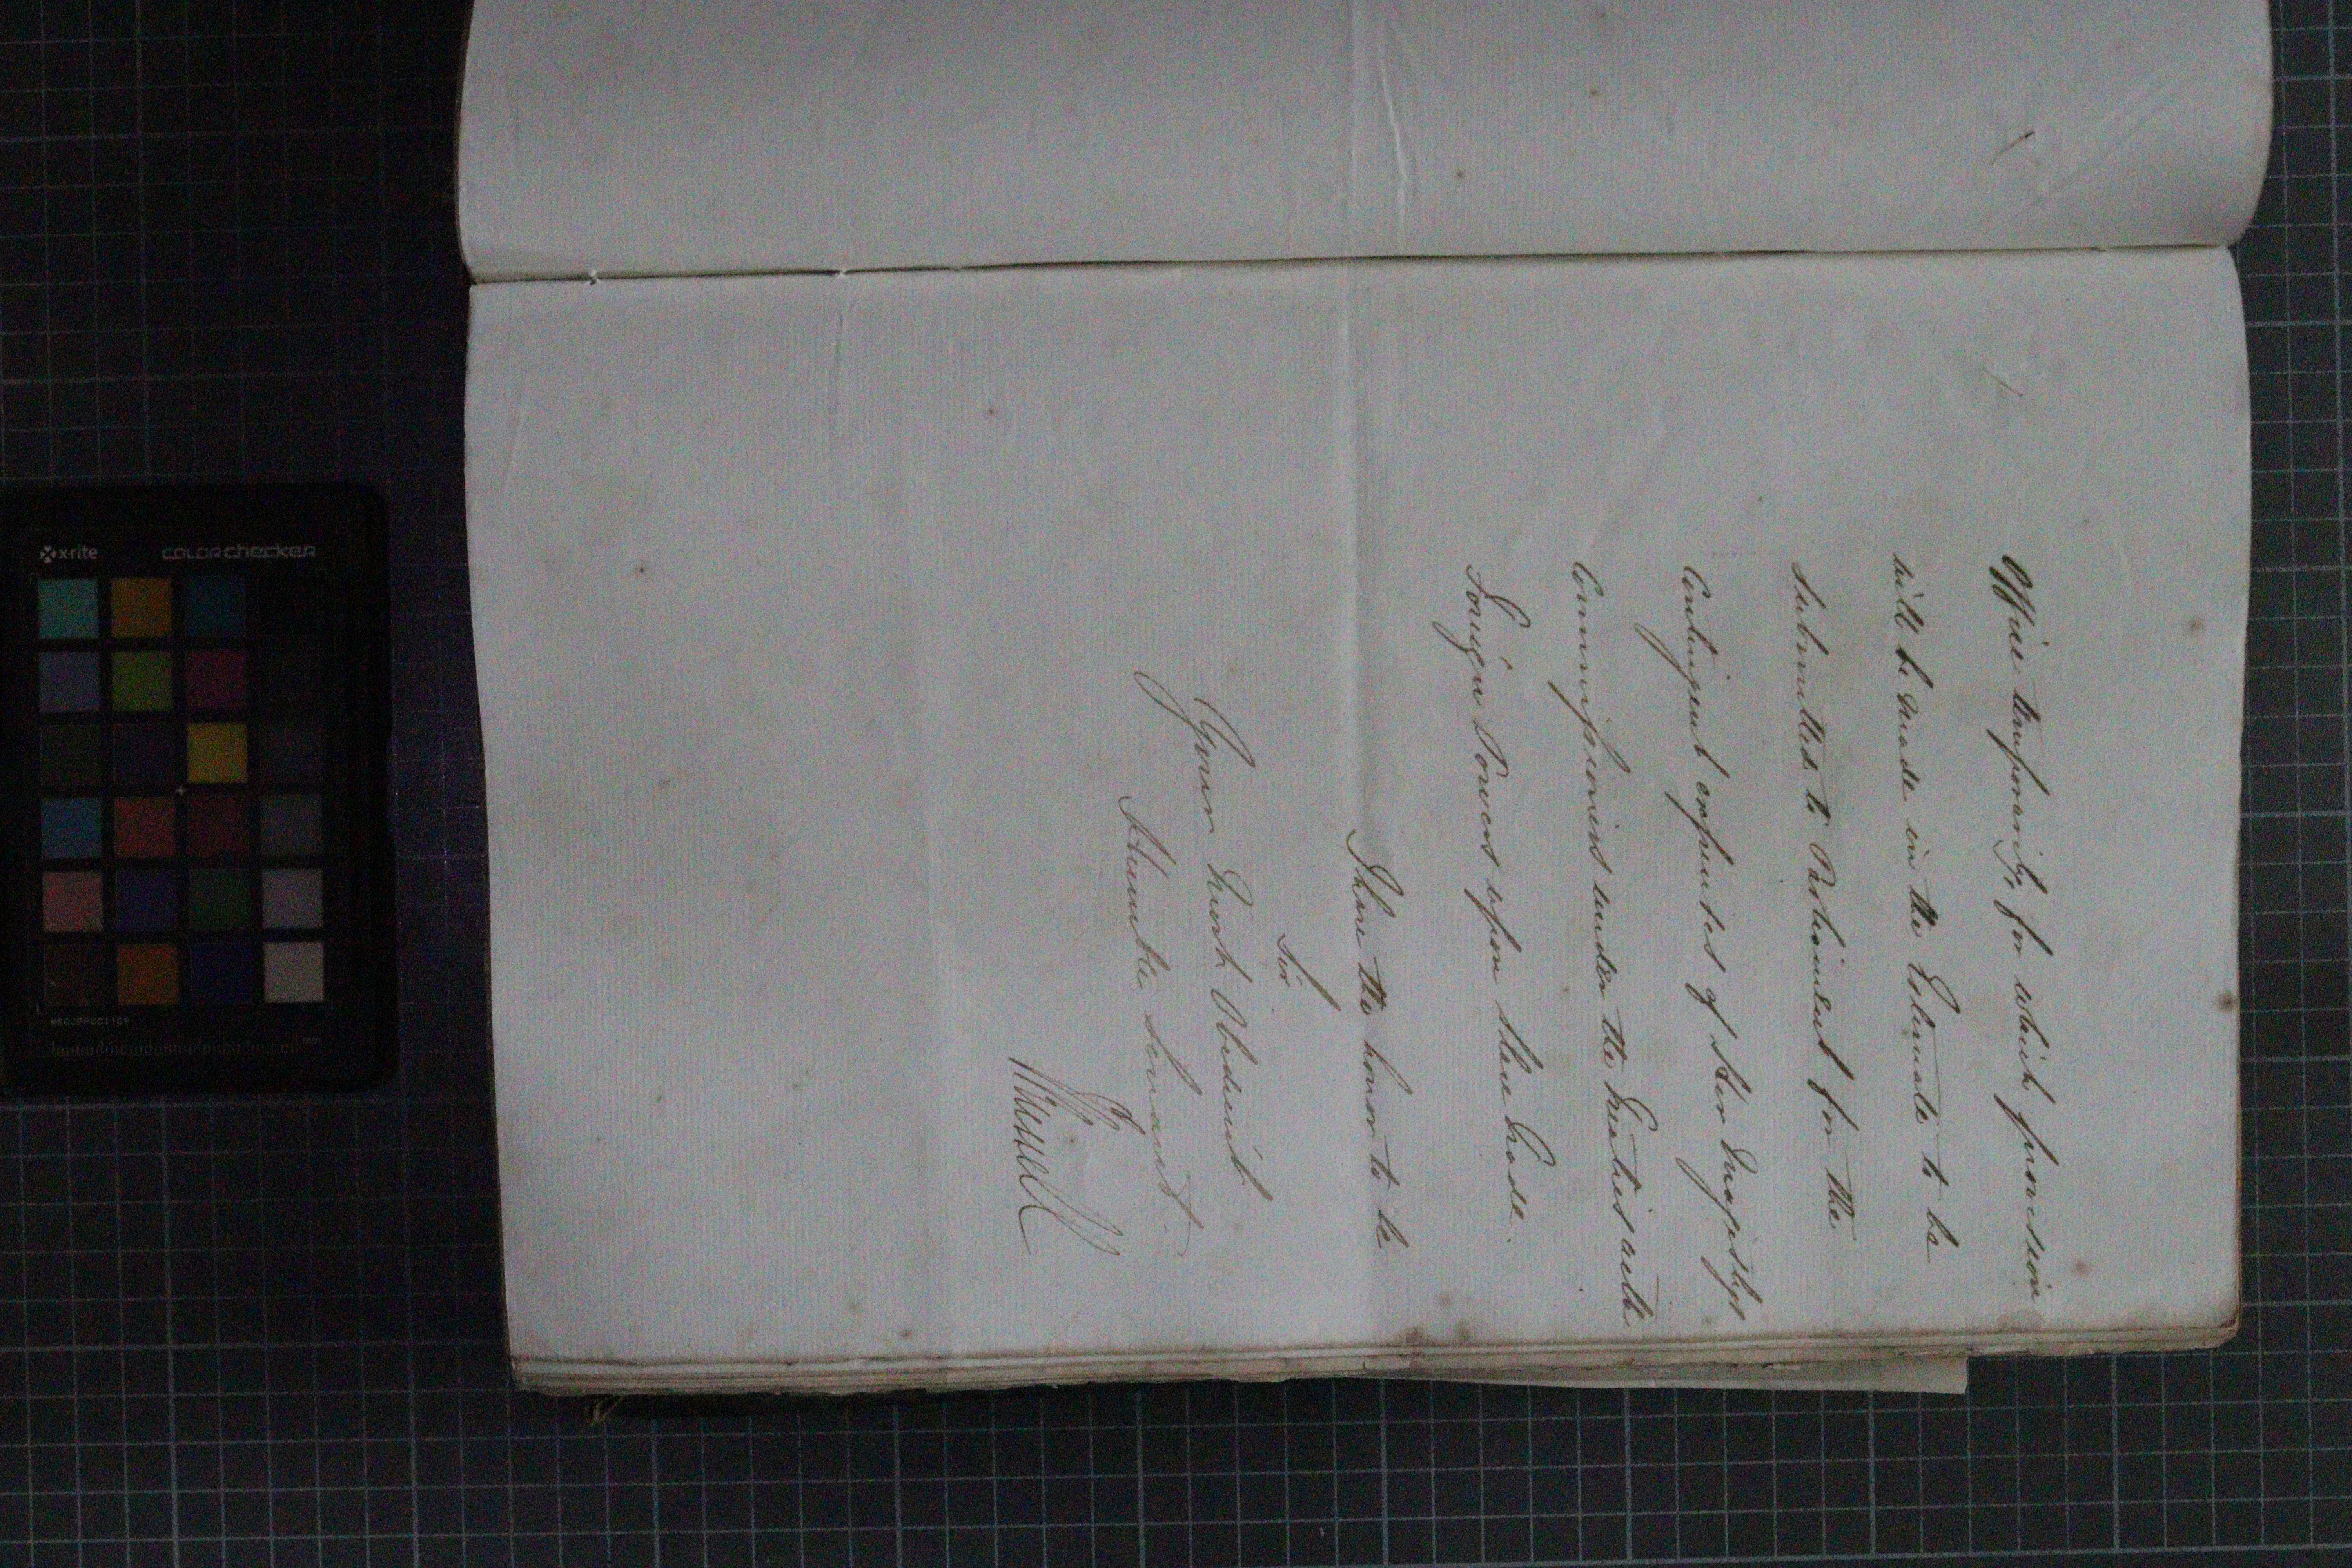 Office temporarily, for which provision
will be made in the Estimate to be
submitted to Parliament for the
Contingent expenses of Her Majesty's
Commissioners under the Treaties with
Foreign Powers upon Slave Trade.
I have the honor to be
Sir
Your Most Obedient
Humble Servant.
J Russell
x-rite
colorchecker